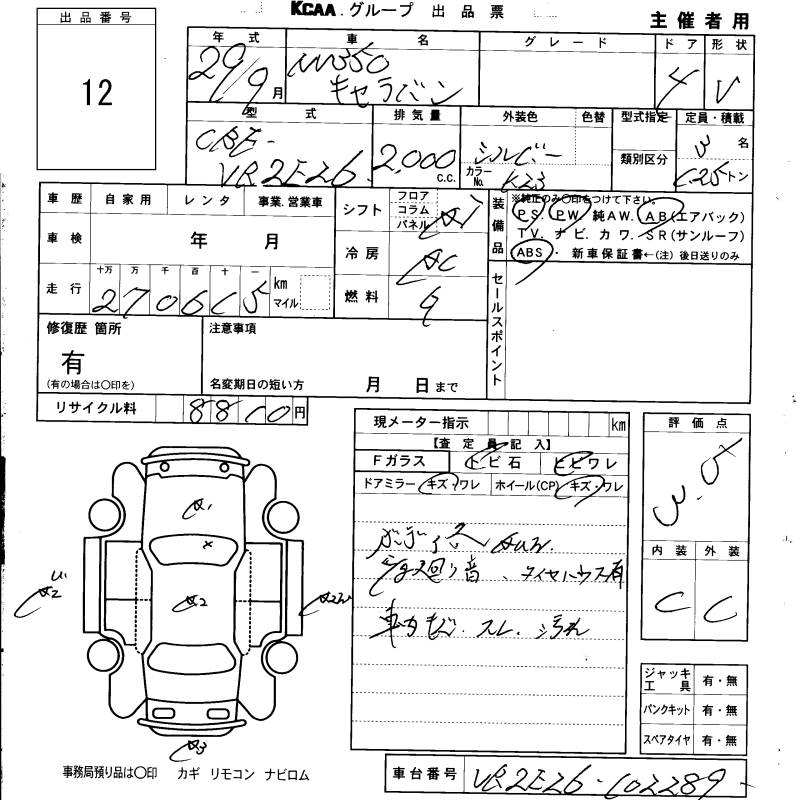 KCAA.グループ 出品票
主催者用
出品番号
12
年式 車名 グレード ドア 形状
29/9月 NV350 キャラバン 4 V
型式 排気量 外装色 色替 型式指定 定員・積載
CBF-
VR2E26 2,000 c.c. シルバー 類別区分 3名
カラーNo. K23 1.25トン
車歴 自家用 レンタ 事業.営業車
車検 年 月
走行 十万 万 千 百 十 一 km マイル
シフト フロア コラム パネル AT
冷房 AC
燃料
装備品 ※純正のみ○印をつけて下さい。
PS. PW 純AW. AB(エアバック)
TV. ナビ. カワ. SR(サンルーフ)
ABS・ 新車保証書←(注)後日送りのみ
セールスポイント
修復歴 箇所
有
(有の場合は○印を)
注意事項
名変期日の短い方 月 日まで
リサイクル料 8810円
現メーター指示 km
【査定員記入】
Fガラス トビ石 ヒビワレ
ドアミラー キズ・ワレ ホイール(CP) キズ・ワレ
タイヤハウス有
車内 スレ. 汚れ
評価点
3.0
内装 外装
C C
ジャッキ工具 有・無
パンクキット 有・無
スペアタイヤ 有・無
A1
×
A2
A3
事務局預り品は○印 カギ リモコン ナビロム
車台番号 VR2E26-102289